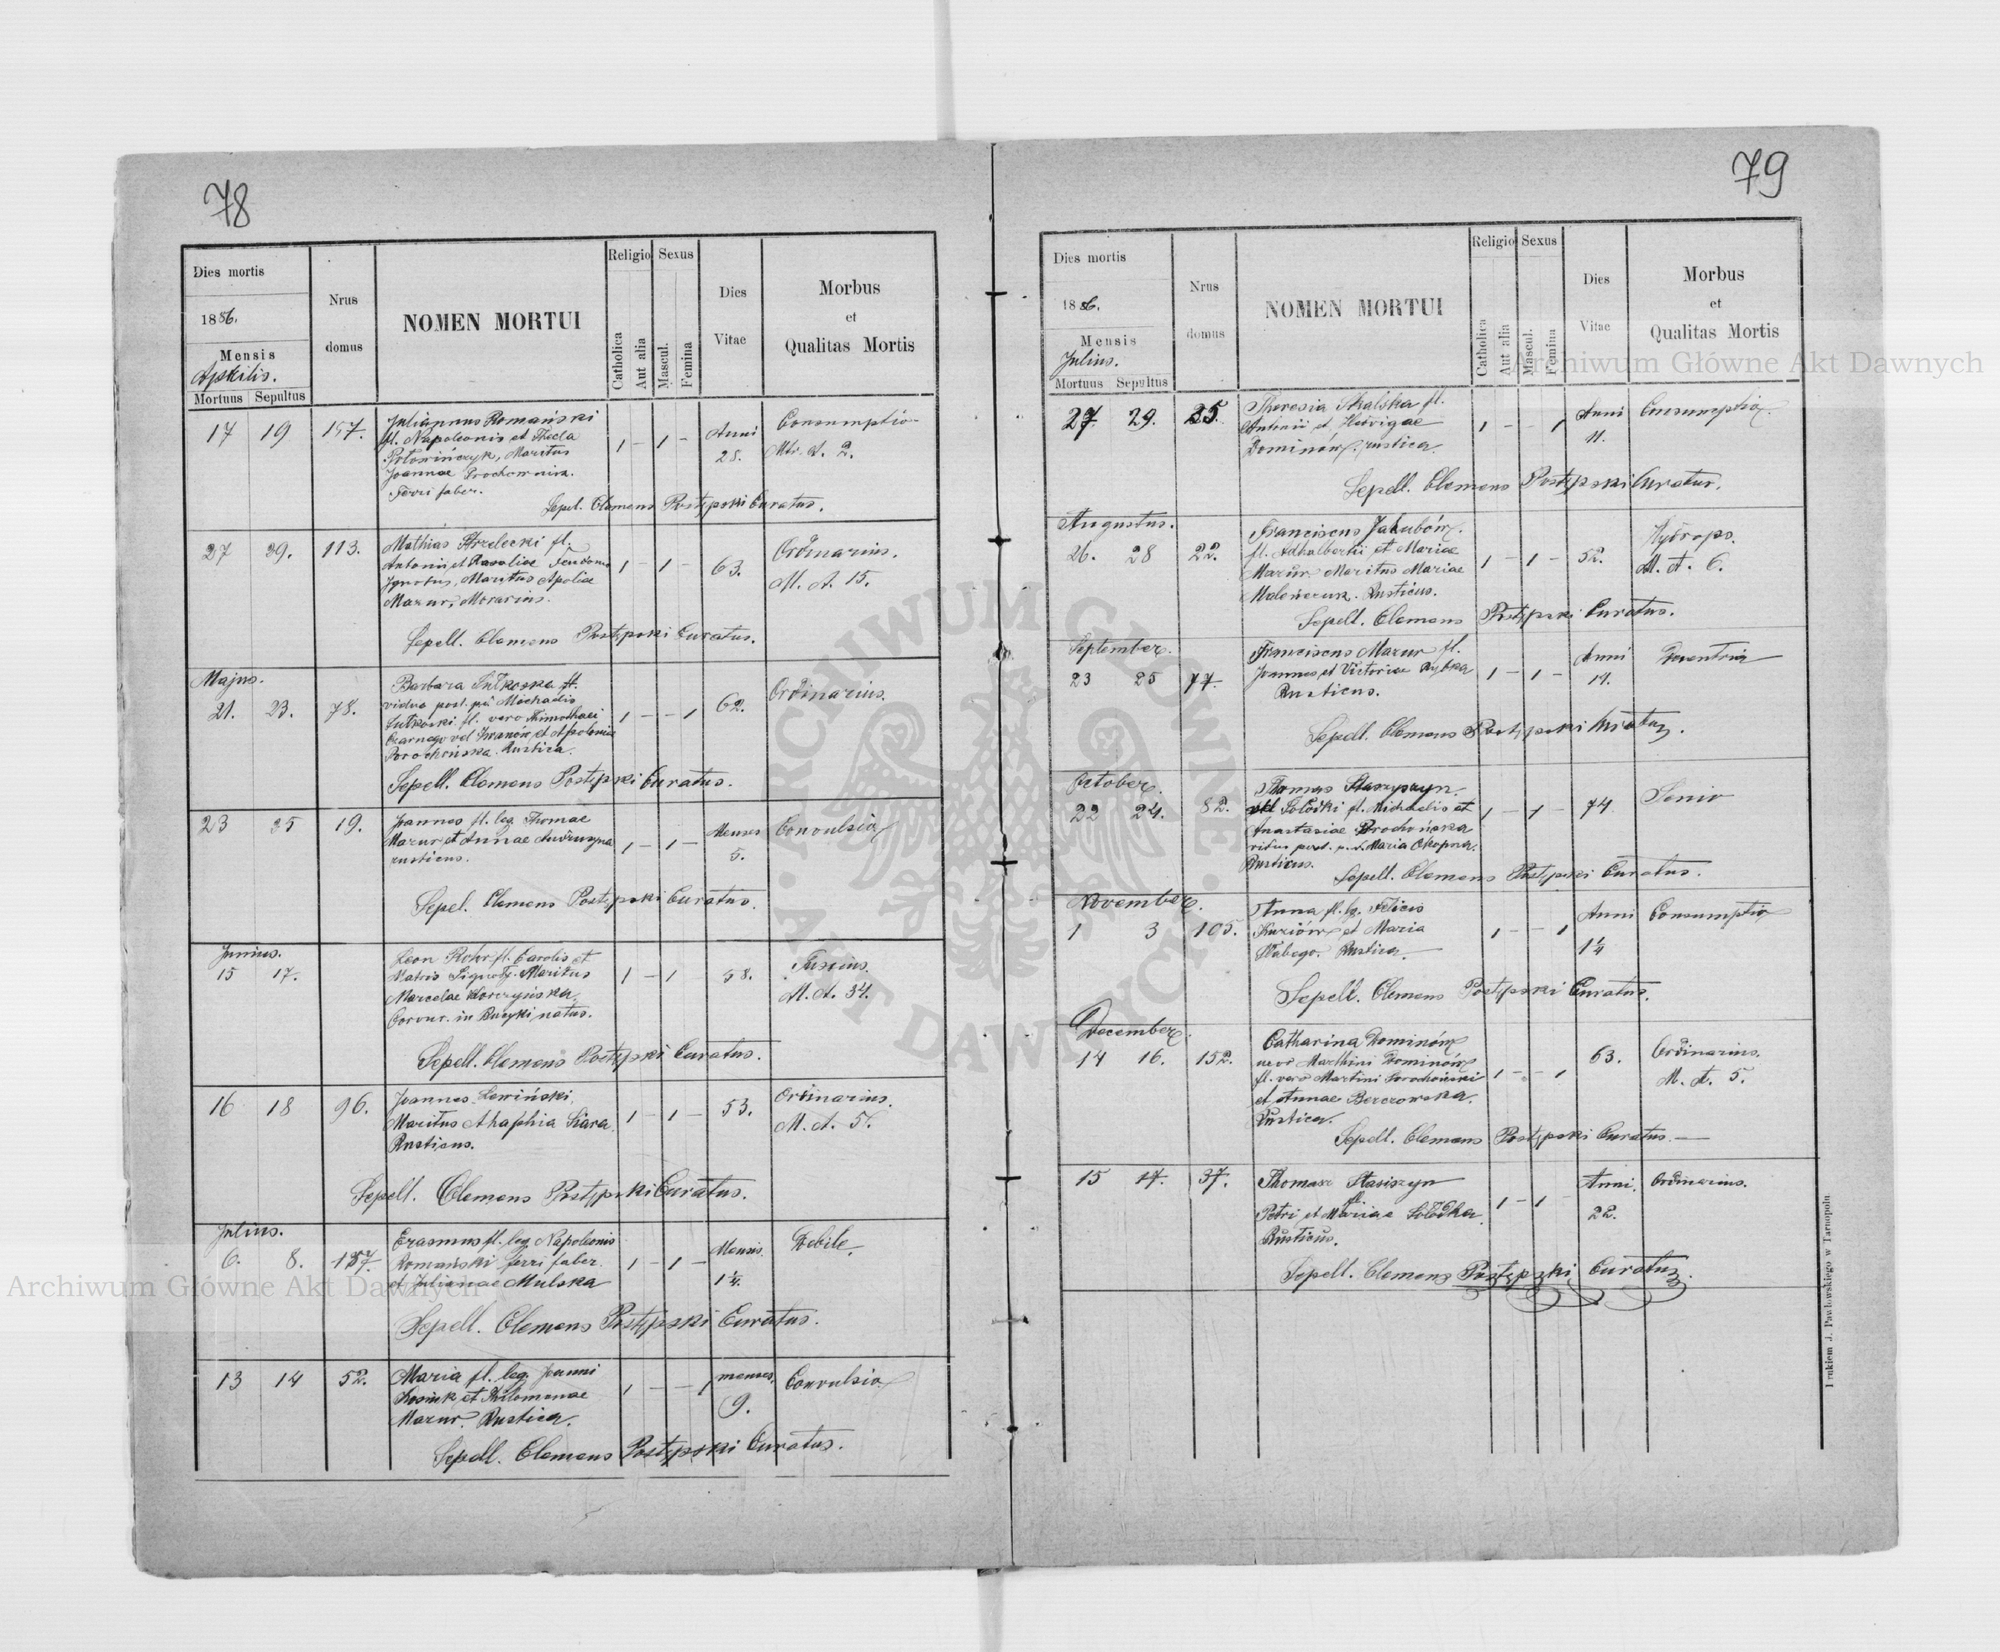 78
Dies mortis
1886.
Mensis
Aprilis.
Mortuus Sepultus
Nrus domus
NOMEN MORTUI
Religio
Catholica
Aut alia
Sexus
Mascul.
Femina
Dies Vitae
Morbus
et
Qualitas Mortis
17 19 157. Julianus Romański 1 - 1 - Anni 28. Consumptio
fl. Napoleonis et Thecla Mtr. A. 2.
Potowińczyk, Maritus
Joannae Prochownik.
Ferri faber.
Sepel. Clemens Postępski Curatus.
27 29. 113. Mathias Strzelecki fl. 1 - 1 - 63. Ordinarius.
Antonii et Rosaliae M. A. 15.
Ignotus, Maritus Apoliae
Mazur, Morarius.
Sepell. Clemens Postępski Curatus.
Majus.
21. 23. 78. Barbara fl. 1 - - 1 62. Ordinarius.
vidua post. Michaelis
fl. vero Thimothaei
Czarnego vel Iwanów et Apolonia
Rustica.
Sepell. Clemens Postępski Curatus.
23 25 19. Joannes fl. leg. Thomae 1 - 1 - Menses 5. Convulsio
Mazur et Annae
rusticus.
Sepel. Clemens Postępski Curatus.
Junius.
15 17. Leon Rohr fl. Carolis et 1 - 1 58. Tussius.
Matris Ignot. Maritus M. A. 34.
Marcelae Korczyńska
in natus.
Sepell. Clemens Postępski Curatus.
16 18 96. Joannes Lewiński, 1 - 1 - 53. Ordinarius.
Maritus Ahaphia M. A. 5.
Rusticus.
Sepell. Clemens Postępski Curatus.
Julius.
6. 8. 157. Erasmus fl. leg. Napoleonis 1 - 1 - Mensis 1¼. Debile.
Romański ferri faber
et Julianae Mulska
Sepell. Clemens Postępski Curatus.
13 14 52. Maria fl. leg. Joanni 1 - - 1 menses, 9. Convulsio
et Philomenae
Mazur. Rustica.
Sepell. Clemens Postępski Curatus.
79
Dies mortis
1886.
Mensis
Julius.
Mortuus Sepultus
Nrus domus
NOMEN MORTUI
Religio
Catholica
Aut alia
Sexus
Mascul.
Femina
Dies Vitae
Morbus
et
Qualitas Mortis
27 29. 25. Theresia Skalska fl. 1 - - 1 Anni 11. Consumptio.
Antonii et Hedvigae
Dominów. rustica.
Sepell. Clemens Postępski Curatus.
Augustus.
26. 28 22. Franciscus Jakubów. 1 - 1 - 52. Hydrops.
fl. Adhalbertii et Mariae M. A. 6.
Mazur, Maritus Mariae
Rusticus.
Sepell. Clemens Postępski Curatus.
September.
23 25 77. Franciscus Mazur fl. 1 - 1 - Anni
Joannes et Victoriae Rybka
Rusticus.
Sepell. Clemens Postępski Curatus.
October.
22 24. 82. Thomas Staszyszyn. 1 - 1 - 74 Senio
vel fl. Michaelis et
Anastasiae
Maria
Rusticus.
Sepell. Clemens Postępski Curatus.
November.
1 3 105. Anna fl. lg. Felicis 1 - - 1 Anni 14 Consumptio
et Maria
Rustica.
Sepell. Clemens Postępski Curatus.
December.
14 16. 152. Catharina Dominów 1 - - 1 63. Ordinarius.
Marthini Dominów M. A. 5.
fl. vero Martini
et Annae Berezowska.
Rustica.
Sepell. Clemens Postępski Curatus.
15 17. 37. Thomasz Stasiszyn 1 - 1 - Anni. 22. Ordinarius.
fl.
Petri et Mariae
Rusticus.
Sepell. Clemens Postępski Curatus.
Drukiem J. Pawłowskiego w Tarnopolu.
Archiwum Główne Akt Dawnych
Archiwum Główne Akt Dawnych
ARCHIWUM GŁÓWNE · AKT DAWNYCH ·